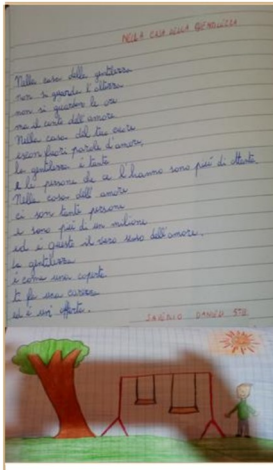 NELLA CASA DELLA GENTILEZZA
Nella casa della gentilezza
non si guarda l'altezza
non si guardan le ore
ma il conto dell'amore
Nella casa del tuo cuore
escon fuori parole d'amore,
la gentilezza è tanta
e le persone che ce l'hanno sono più di ottanta
Nella casa dell'amore
ci son tante persone
e sono più di un milione
ed è questo il vero senso dell'amore.
La gentilezza
è come una coperta
ti fa una carezza
ed è un'offerta.
SAVERIO 5TB